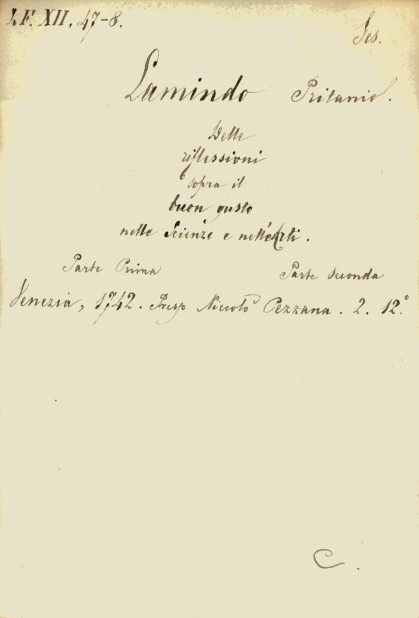 I. F. XII, 47-8.
Ses.
Lamindo Pritanio.
Delle
riflessioni
sopra il
buon gusto
nelle Scienze e nell'Arti.
Parte Prima Parte Seconda
Venezia, 1742. Presso Niccolò Pezzana. 2. 12.°
C.